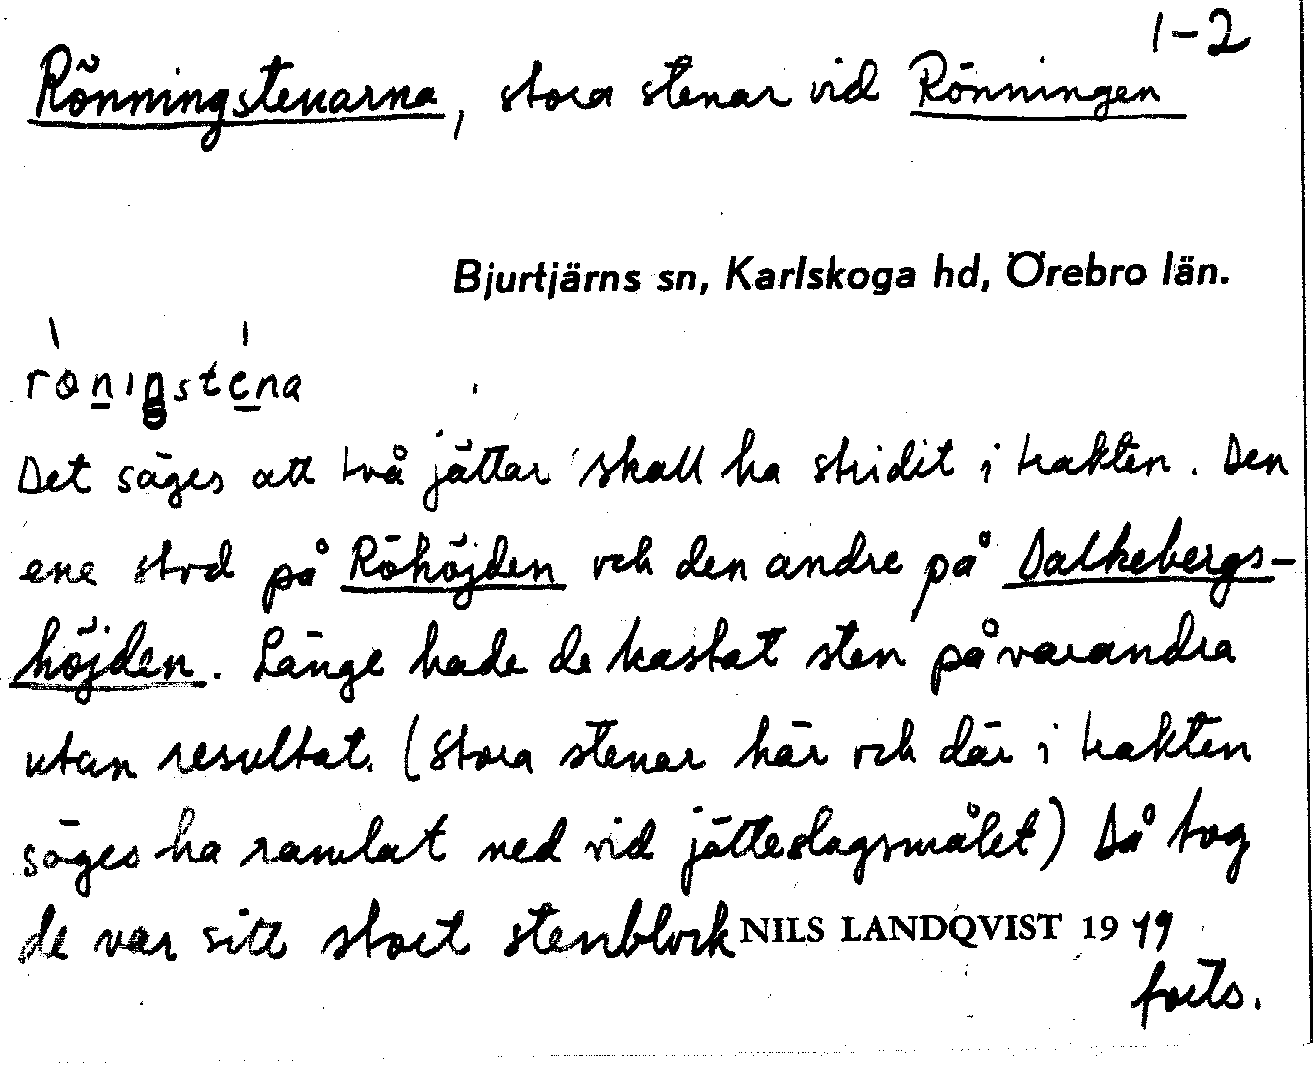 1-2
Rönningstenarna, stora stenar vid Rönningen
Bjurtjärns sn, Karlskoga hd, Örebro län.
Det säges att två jättar skall ha stridit i trakten. Den
ene stod på Röhöjden och den andre på Dalkebergs-
höjden. Länge hade de kastat sten på varandra
utan resultat. (Stora stenar här och där i trakten
säges ha ramlat ned vid jätteslagsmålet) Då tog
de var sitt stort stenblock NILS LANDQVIST 19
forts.